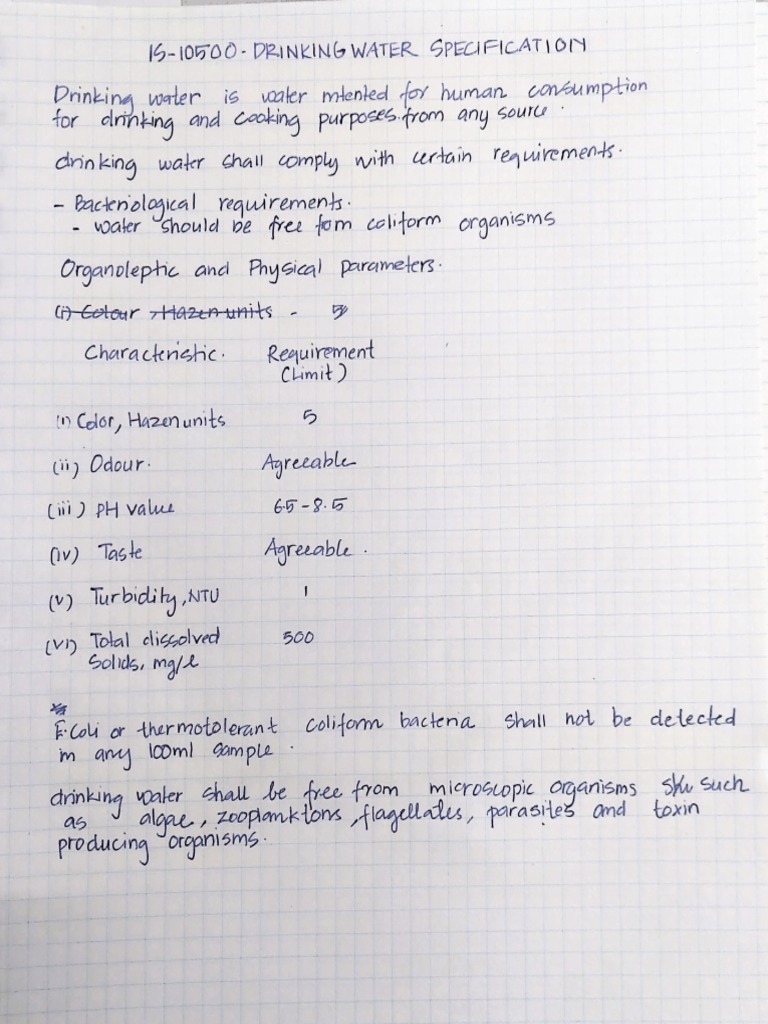 IS-10500-DRINKING WATER SPECIFICATION
Drinking water is water intented for human consumption
for drinking and cooking purposes from any source.
drinking water shall comply with certain requirements.
- Bacteriological requirements.
- water should be free from coliform organisms
Organoleptic and Physical parameters.
(i) Colour, Hazen units - 5
Characteristic. Requirement
(Limit)
(i) Color, Hazen units 5
(ii) Odour. Agreeable
(iii) pH value 6.5-8.5
(iv) Taste Agreeable.
(v) Turbidity, NTU 1
(vi) Total dissolved 500
Solids, mg/l
*
E.Coli or thermotolerant coliform bacteria shall not be detected
in any 100ml sample.
drinking water shall be free from microscopic organisms such
as algae, zooplanktons, flagellates, parasites and toxin
producing organisms.